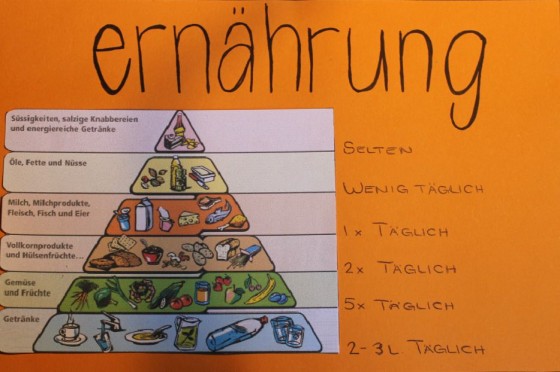 ernährung
Süssigkeiten, salzige Knabbereien
und energiereiche Getränke
SELTEN
Öle, Fette und Nüsse
WENIG TÄGLICH
Milch, Milchprodukte,
Fleisch, Fisch und Eier
1x TÄGLICH
Vollkornprodukte
und Hülsenfrüchte...
2x TÄGLICH
Gemüse
und Früchte
5x TÄGLICH
Getränke
2-3 L TÄGLICH